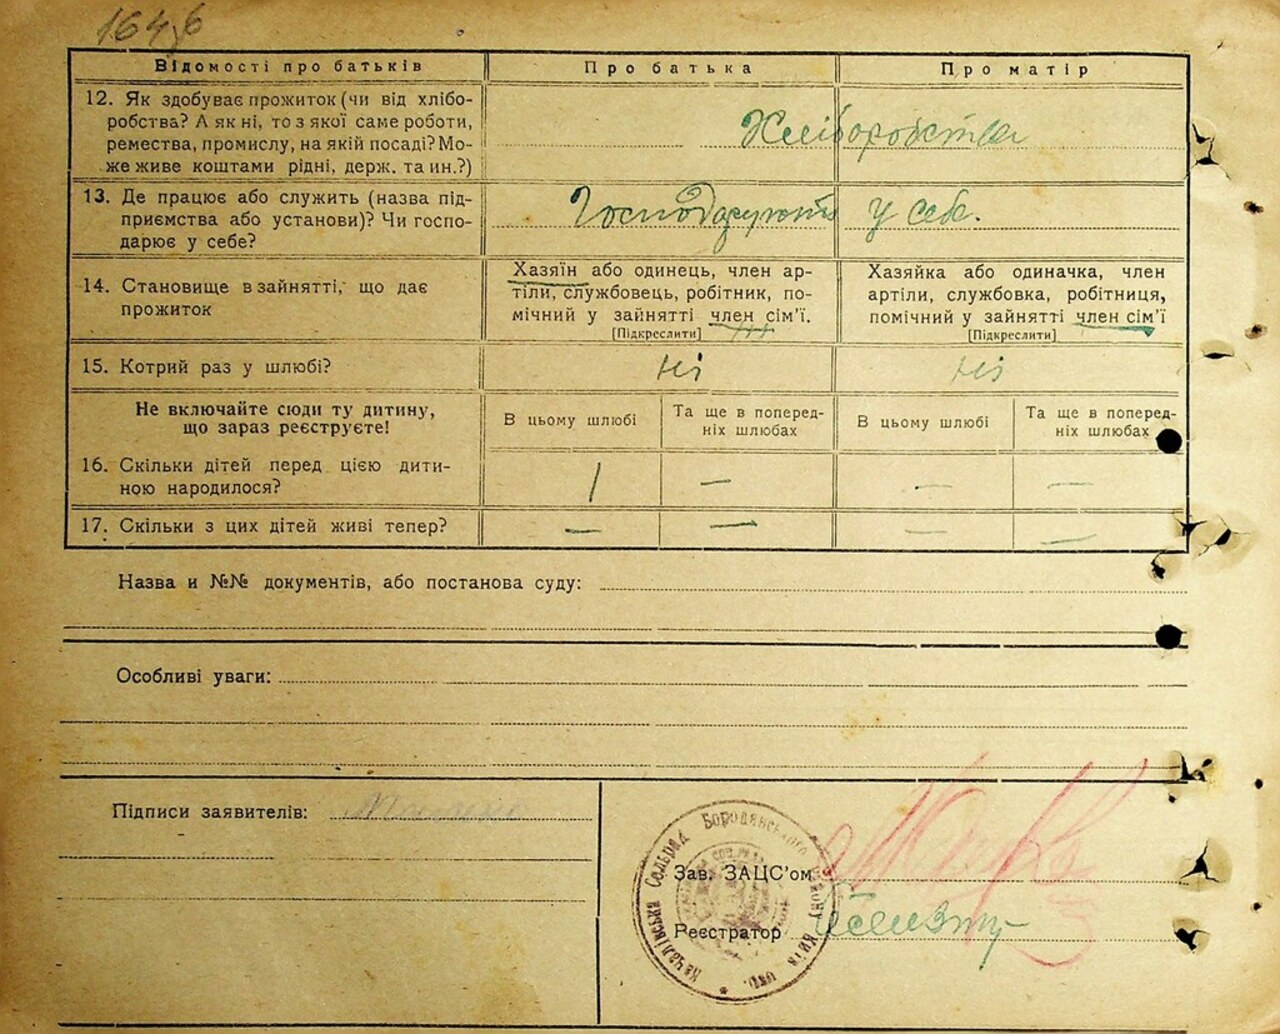 164
Відомості про батьків
Про батька
Про матір
12. Як здобуває прожиток (чи від хлібо-
робства? А як ні, то з якої саме роботи,
ремества, промислу, на якій посаді? Мо-
же живе коштами рідні, держ. та ин.?)
Хліборобства
13. Де працює або служить (назва під-
приємства або установи)? Чи госпо-
дарює у себе?
Господарують у себе.
14. Становище в зайнятті, що дає
прожиток
Хазяїн або одинець, член ар-
тіли, службовець, робітник, по-
мічний у зайнятті член сім'ї.
[Підкреслити]
Хазяйка або одиначка, член
артіли, службовка, робітниця,
помічний у зайнятті член сім'ї
[Підкреслити]
15. Котрий раз у шлюбі?
Ні
Ні
Не включайте сюди ту дитину,
що зараз реєструєте!
В цьому шлюбі
Та ще в поперед-
ніх шлюбах
В цьому шлюбі
Та ще в поперед-
ніх шлюбах
16. Скільки дітей перед цією дити-
ною народилося?
1 — — —
17. Скільки з цих дітей живі тепер?
— — — —
Назва и №№ документів, або постанова суду:
Особливі уваги:
Підписи заявителів:
Зав. ЗАЦС'ом
Реєстратор
Сельрад Бородянського району